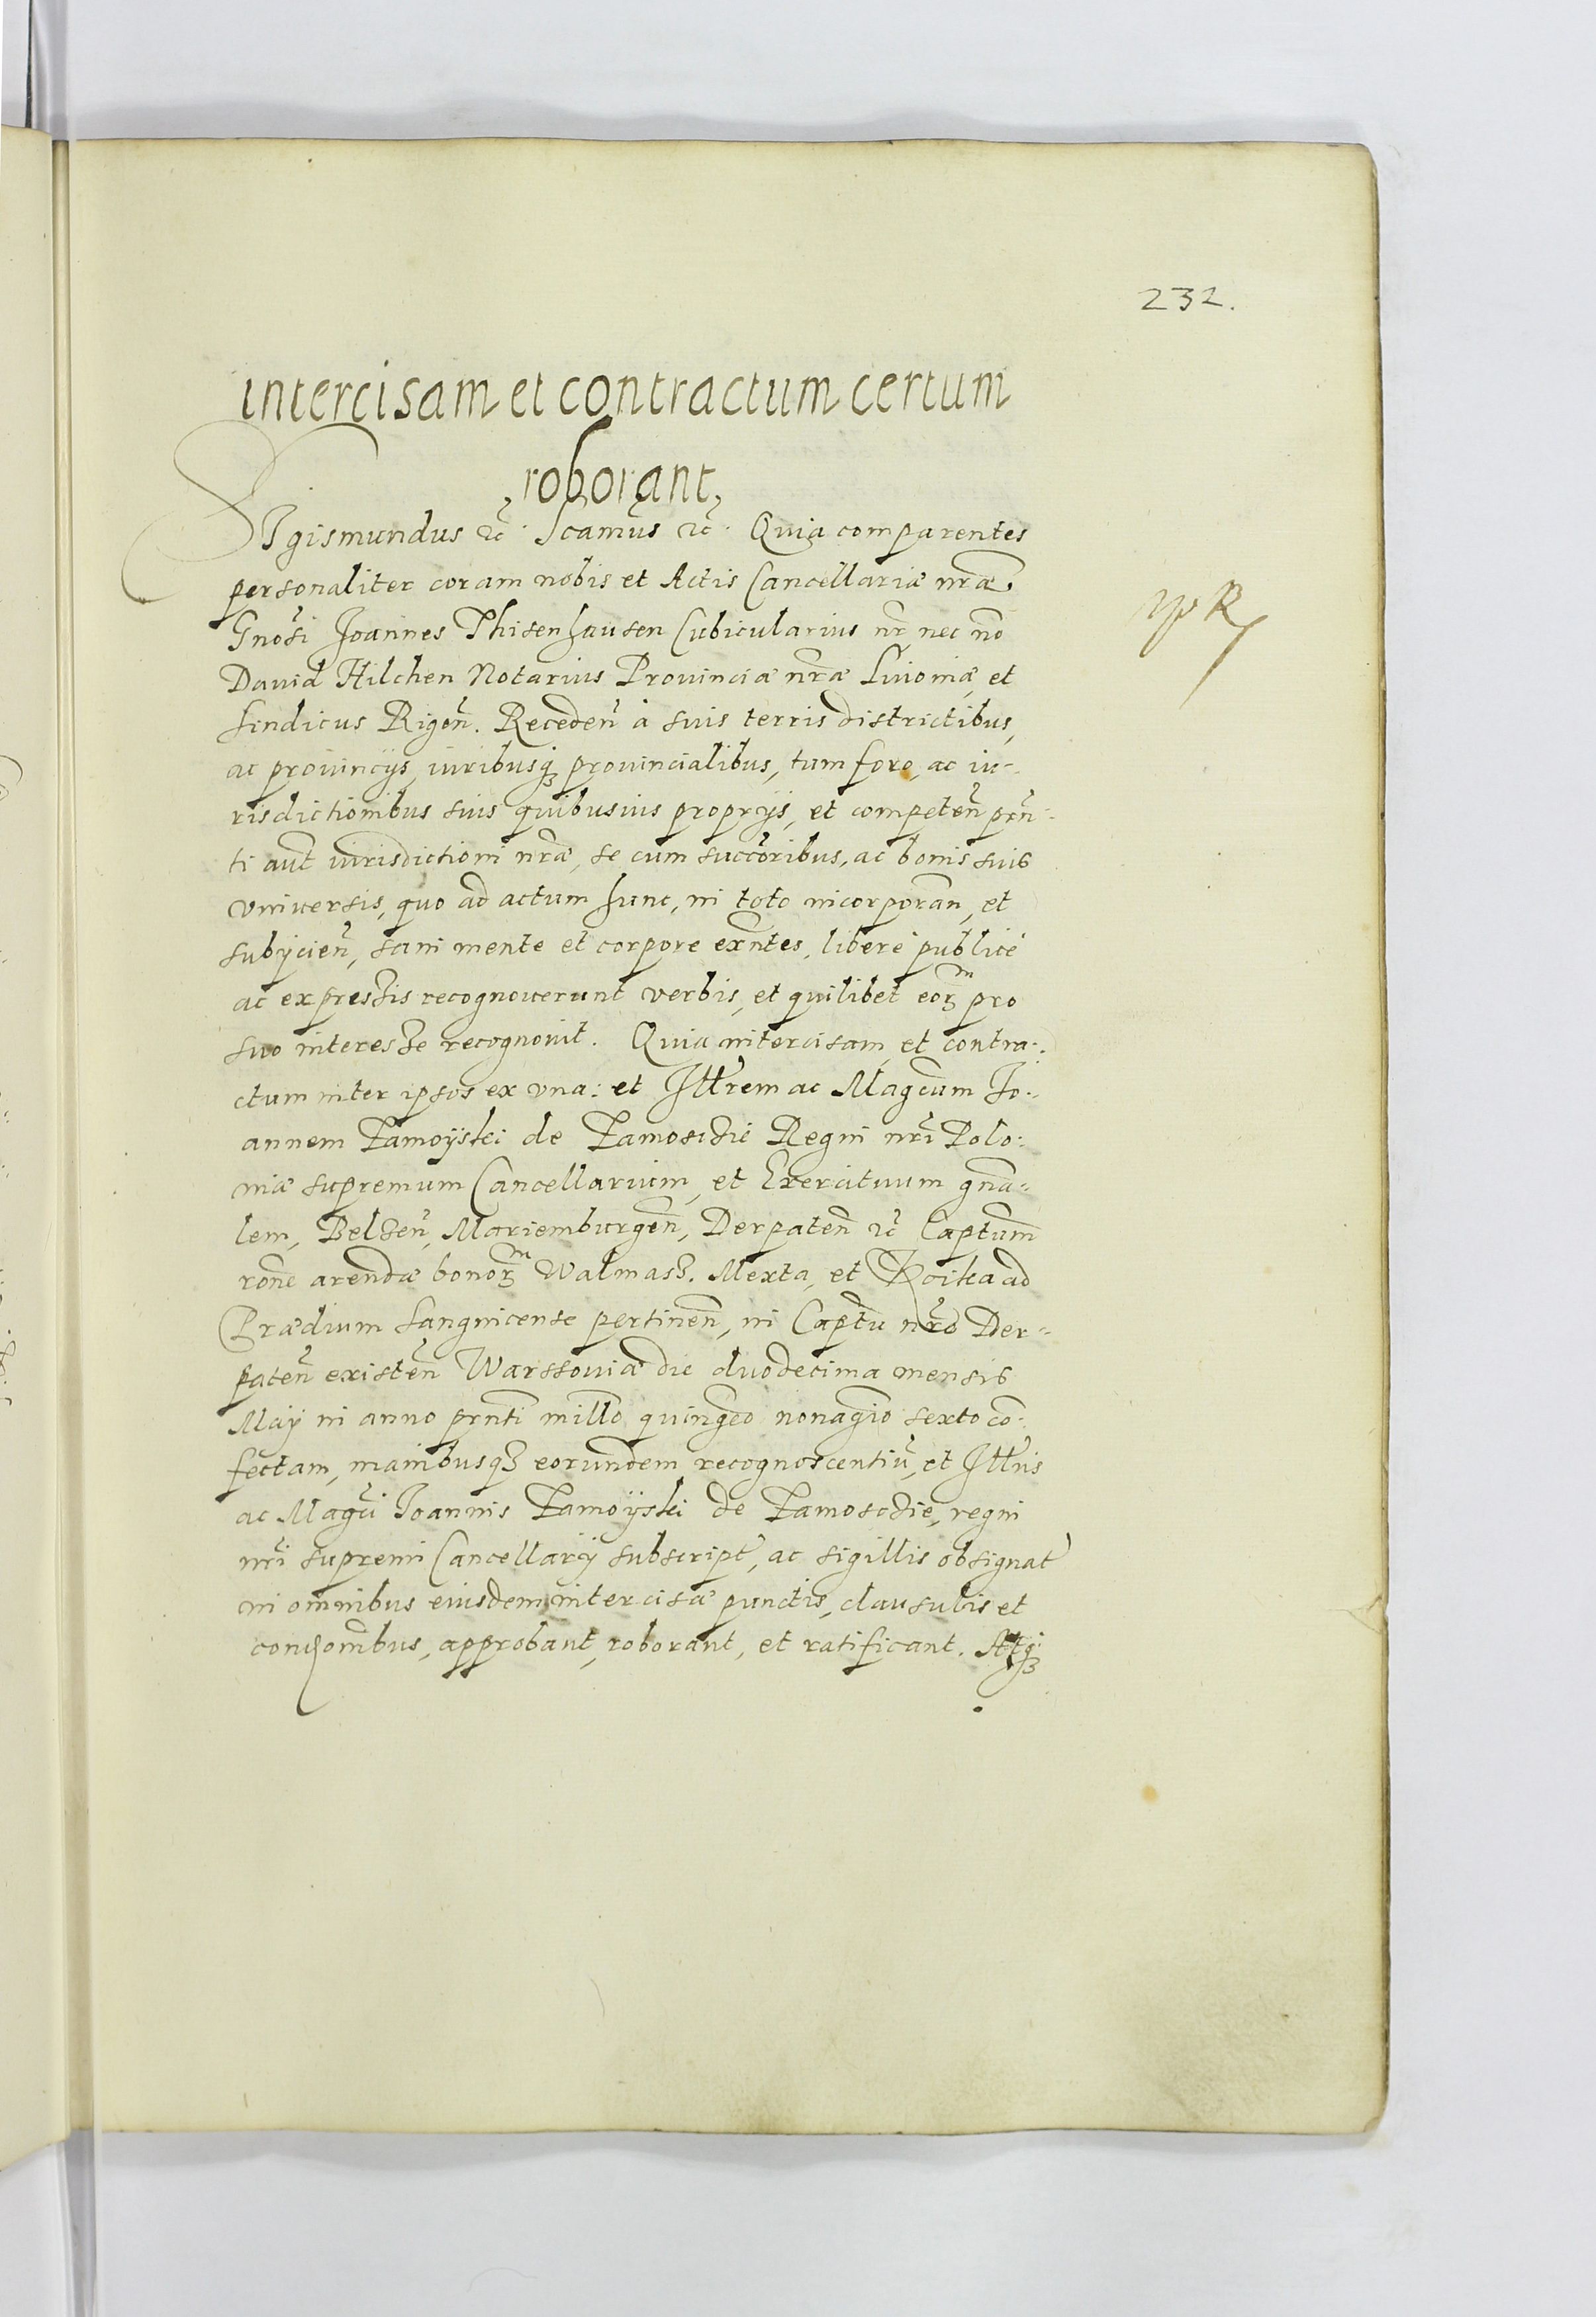 232.
intercisam et contractum certum
roborant
SIgismundus etc̃. Scamus etc̃. Quia comparentes
personaliter coram nobis et Actis Cancellariæ nr̃æ
Gnosi Joannes Thisenhausen Cubicularius nr̃, nec nõ
Dauid Hilchen Notarius Prouinciæ nr̃æ Liuoniæ, et
Sindicus Rigeñ. Recedeñ à suis terris districtibus,
ac prouincijs, iuribusq₃ prouincialibus, tum foro, ac iu-
risdictionibus suis quibusuis proprijs, et competeñ pr̃n-
ti aut̃ iurisdictioni nr̃æ, se cum succoribus, ac bonis suis
vniuersis, quo ad actum hunc, in toto incorporañ, et
subijcieñ, sani mente et corpore exñtes, liberè publicè
ac expressis recognouerunt verbis, et quilibet eorꝫm pro
suo interesse recognouit. Quia intercisam, et contra-
ctum inter ipsos ex vna: et Illr̃em ac Magcum Jo-
annem Zamoyski de Zamoscie Regni nr̃i Polo-
niæ supremum Cancellarium, et Exercituum gñã-
lem, Belseñ, Mariemburgeñ, Derpateñ etc̃ Captum
rõne arendæ bonorꝫm Walmass. Mexta, et Koika ad
Prædium Sangnicense pertineñ, in Captu nr̃o Der-
pateñ existeñ Warssouiæ die duodecima mensis
Maij in anno prñti millõ quingẽo nonagiõ sexto cõ-
fectam, manibusq₃ eorundem recognoscentiũ, et Illr̃is
ac Magci Joannis Zamoyski de Zamoscie, regni
nr̃i supremi Cancellarij subscript̃, ac sigillis obsignat̃
in omnibus eiusdem intercisæ punctis, clausulis et
condõnibus, approbant, roborant, et ratificant. Atq₃